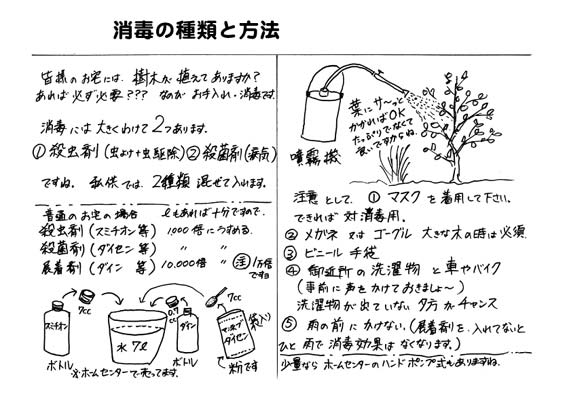 消毒の種類と方法
皆様のお宅には、樹木が植えてありますか?
あれば必ず必要??? なのが お手入れ・消毒です。
消毒には大きくわけて2つあります。
①殺虫剤(虫よけ+虫駆除)②殺菌剤(病気)
ですね。私供では、2種類 混ぜて入れます。
普通のお宅の場合 7ℓもあれば十分ですので、
殺虫剤(スミチオン等) 1,000倍にうすめる。
殺菌剤(ダイセン等) 〃 〃
展着剤(ダイン 等) 10,000倍 〃 注 1万倍ですヨ
7cc
0.7cc
7cc
スミチオン
水 7ℓ
ダイン
ダイセン
袋入り
ボトル
ボトル
粉です
※ホームセンターで売ってます。
葉にサ〜っと
かかればOK
たっぷりでなくて
良いですからね。
噴霧機
注意として、① マスクを着用して下さい。
できれば 対消毒用。
② メガネ 又は ゴーグル 大きな木の時は必須
③ ビニール手袋
④ 御近所の洗濯物と車やバイク
(事前に声をかけておきましょ〜)
洗濯物が出ていない夕方がチャンス
⑤ 雨の前にかけない。(展着剤を、入れてないと
ひと雨で消毒効果はなくなります。)
少量なら ホームセンターのハンドポンプ式もありますね。